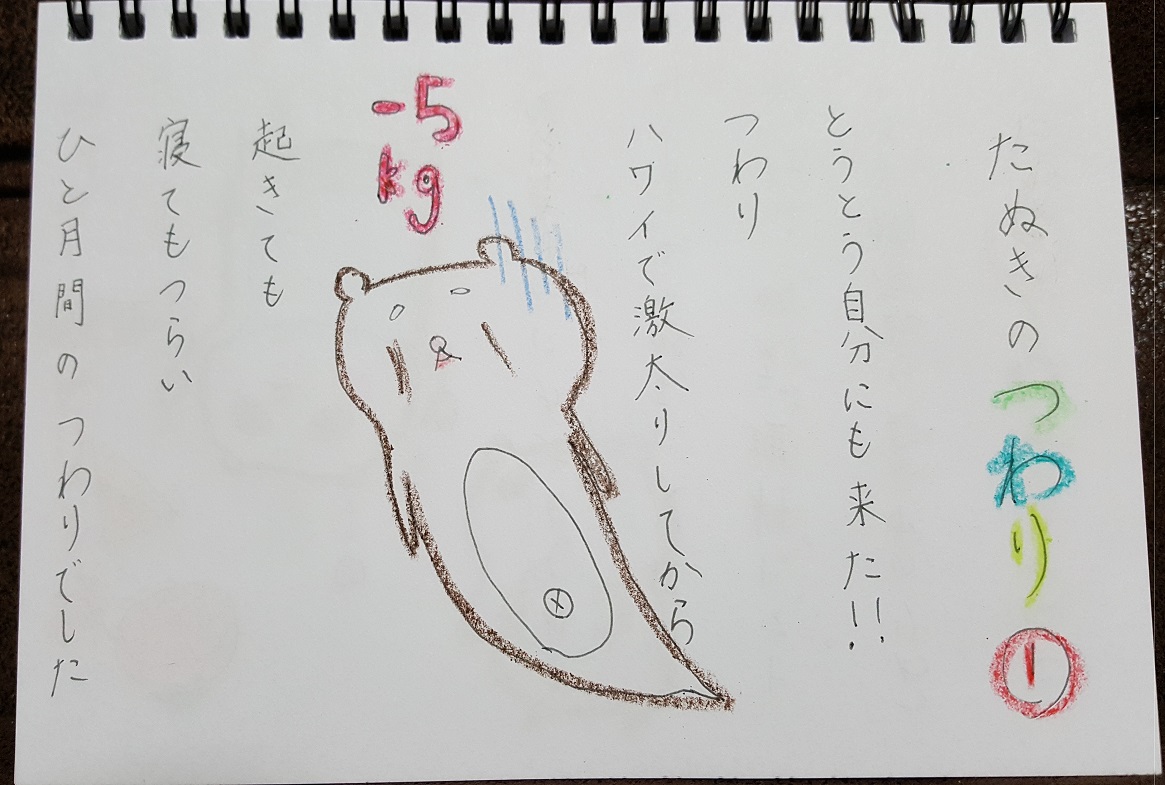 たぬきのつわり①
とうとう自分にも来た!!
つわり
ハワイで激太りしてから
-5
kg
起きても
寝てもつらい
ひと月間のつわりでした